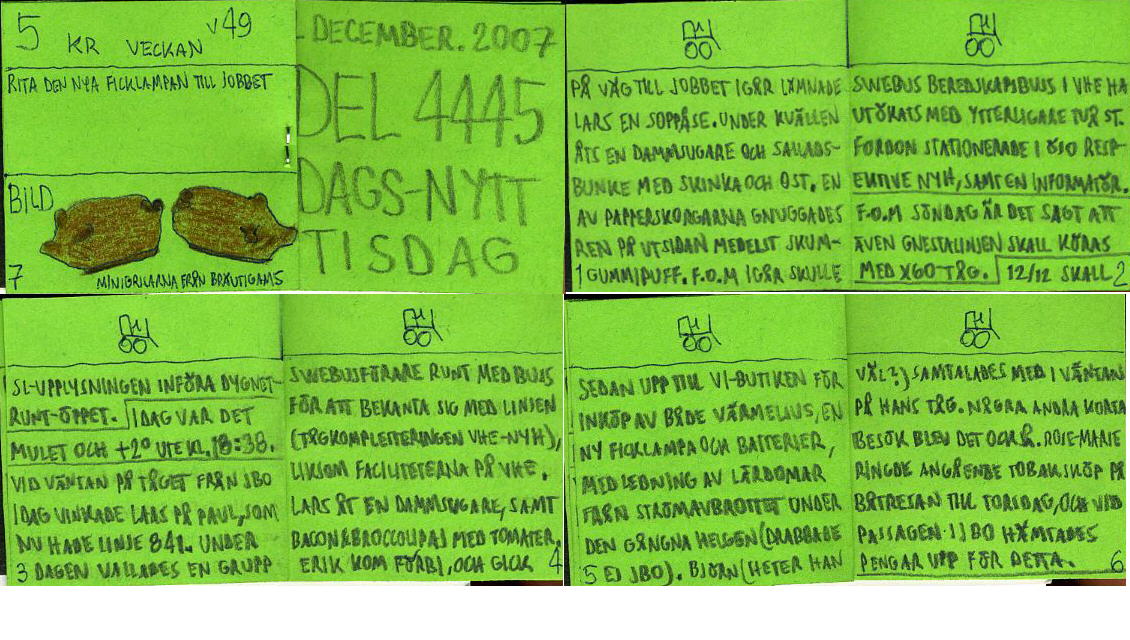 5 KR VECKAN V49
RITA DEN NYA FICKLAMPAN TILL JOBBET
BILD
7 MINIGRISARNA FRÅN BRÄUTIGAMS
DECEMBER. 2007
DEL 4445
DAGS-NYTT
TISDAG
PÅ VÄG TILL JOBBET IGÅR LÄMNADE
LARS EN SOPPÅSE. UNDER KVÄLLEN
ÅTS EN DAMMSUGARE OCH SALLADS-
BUNKE MED SKINKA OCH OST. EN
AV PAPPERSKORGARNA GNUGGADES
REN PÅ UTSIDAN MEDELST SKUM-
1 GUMMIPUFF. F.O.M IGÅR SKULLE
SWEBUS BEREDSKAPSBUSS I VHE HA
UTÖKATS MED YTTERLIGARE TVÅ ST.
FORDON STATIONERADE I ÖSO RESP-
EKTIVE NYH, SAMT EN INFORMATÖR.
F.O.M SÖNDAG ÄR DET SAGT ATT
ÄVEN GNESTALINJEN SKALL KÖRAS
MED X60 TÅG. 12/12 SKALL 2
SL-UPPLYSNINGEN INFÖRA DYGNET-
RUNT-ÖPPET. IDAG VAR DET
MULET OCH +2° UTE KL. 18:38.
VID VÄNTAN PÅ TÅGET FRÅN JBO
IDAG VINKADE LARS PÅ PAUL, SOM
NU HADE LINJE 841. UNDER
3 DAGEN VALLADES EN GRUPP
SWEBUSFÖRARE RUNT MED BUSS
FÖR ATT BEKANTA SIG MED LINJEN
(TÅGKOMPLETTERINGEN VHE-NYH),
LIKSOM FACILITETERNA PÅ VHE.
LARS ÅT EN DAMMSUGARE, SAMT
BACON&BROCCOLIPAJ MED TOMATER.
ERIK KOM FÖRBI, OCH GICK 4
SEDAN UPP TILL VI-BUTIKEN FÖR
INKÖP AV BÅDE VÄRMELJUS, EN
NY FICKLAMPA OCH BATTERIER,
MED LEDNING AV LÄRDOMAR
FRÅN STRÖMAVBROTTET UNDER
DEN GÅNGNA HELGEN (DRABBADE
5 EJ JBO). BJÖRN (HETER HAN
VÄL?) SAMTALADES MED I VÄNTAN
PÅ HANS TÅG. NÅGRA ANDRA KORTA
BESÖK BLEV DET OCKSÅ. ROSE-MARIE
RINGDE ANGÅENDE TOBAKSKÖP PÅ
BÅTRESAN TILL TORSDAG, OCH VID
PASSAGEN I JBO HÄMTADES
PENGAR UPP FÖR DETTA. 6